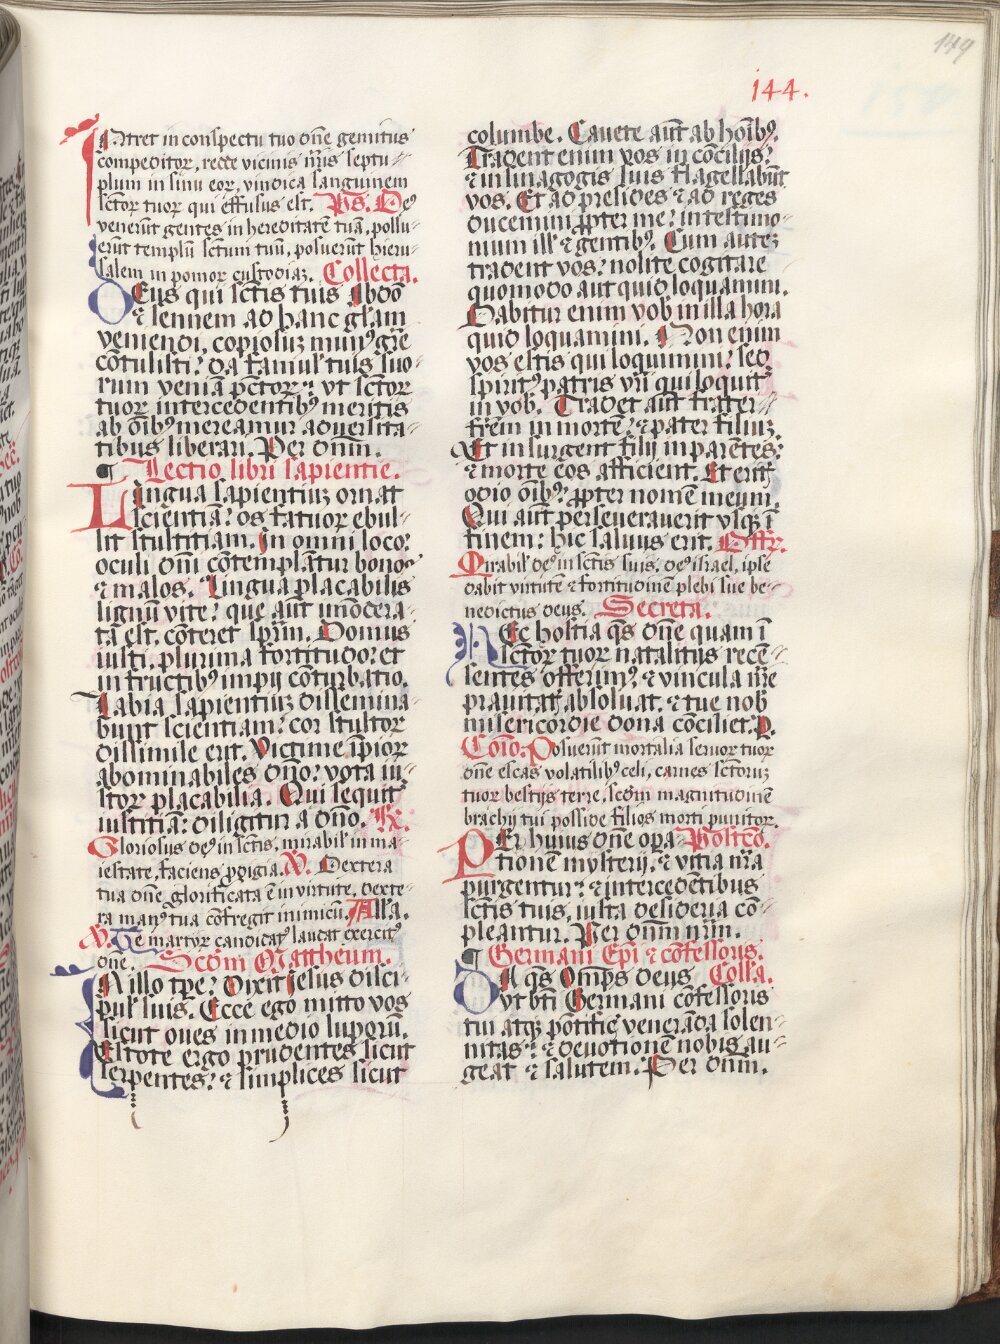 149
144.
INtret in conspectu tuo dñe gemitus
compeditoꝝ, redde vicinis nr̃is septu
plum in sinu eoꝝ, vindica sanguinem
sctõꝝ tuoꝝ qui effusus est. Ps. Deꝰ
venerũt gentes in hereditatẽ tuã, pollu-
erũt templũ sctũm tuũ, posuerũt hieru-
salem in pomoꝝ custodiaꝫ. Collecta.
DEus qui sctĩs tuis Abdõ
⁊ sennem ad hanc glãm
veniendi, copiosuꝫ munꝰ grẽ
cõtulisti: da famul̃ tuis suo-
rum veniã pctõꝝ: vt sctõꝝ
tuoꝝ intercedentibꝰ meritis
ab oĩbꝰ mereamur aduersita-
tibus liberari. Per dñm.
¶ Lectio libri sapientie.
Lingua sapientiuꝫ ornat
scientiã: os fatuoꝝ ebul-
lit stultitiam. In omni loco
oculi dñi cõtemplãtur bonos
⁊ malos. Lingua placabilis
lignũ vite: que aut̃ imõdera-
ta est, cõteret spr̃m. Domus
iusti, plurima fortitudo: et
in fructibꝰ impij cõturbatio.
Labia sapientiuꝫ dissemina
bunt scientiam: cor stultoꝝ
dissimile erit. Victime ĩpioꝝ
abominabiles dño: vota iu-
stoꝝ placabilia. Qui sequit̃
iustitiã: diligitur a dño. R̃.
Gloriosus deꝰ in sctĩs, mirabil̃ in ma-
iestate, faciens ꝓdigia. V. Dextera
tua dñe glorificata ẽ in virtute, dexte-
ra manꝰ tua cõfregit inimicũ. Alla.
V. Te martyꝝ candidatꝰ laudat exercitꝰ
dñe. Scðm Mattheum.
IN illo tpẽ: Dixit Jesus disci-
pul̃ suis. Ecce ego mitto vos
sicut oues in medio luporũ.
Estote ergo prudentes sicut
serpentes: ⁊ simplices sicut
columbe. Cauete aut̃ ab hoĩbꝰ.
Tradent enim vos in cõcilijs:
⁊ in sinagogis suis flagellabũt
vos. Et ad presides ⁊ ad reges
ducemini ꝓpter me: in testimo-
nium ill̃ ⁊ gentibꝰ. Cum auteꝫ
tradent vos: nolite cogitare
quomodo aut quid loquamini.
Dabitur enim vob̃ in illa hora
quid loquamini. Non enim
vos estis qui loquimini: sed
spiritꝰ patris vr̃i qui loquit̃
in vob̃. Tradet aut̃ frater
fr̃em in mortẽ: ⁊ pater filiuꝫ.
Et insurgent filij in parẽtes:
⁊ morte eos afficient. Et erit̃
odio oĩbꝰ ꝓpter nomẽ meum.
Qui aut̃ perseuerauerit vsqꝫ ĩ
finem: hic saluus erit. Offr̃.
Mirabil̃ deꝰ in sctĩs suis. deꝰ israel, ipse
dabit virtutẽ ⁊ fortitudinẽ plebi sue be-
nedictus deus. Secreta.
HEc hostia qs̃ dñe quam ĩ
sctõꝝ tuoꝝ natalitijs recẽ-
sentes offerimꝰ: ⁊ vincula nr̃e
prauitat̃ absoluat, ⁊ tue nob̃
misericordie dona cõciliet. P.
Cõio. Posuerũt mortalia seruoꝝ tuoꝝ
dñe escas volatilibꝰ celi, carnes sctõruꝫ
tuoꝝ bestijs terre, scðm magnitudinẽ
brachij tui posside filios morti punitoꝝ.
PEr huius dñe oꝑa- Postcõ.
tionẽ mysterij: ⁊ vitia nr̃a
purgentur: ⁊ intercedẽtibus
sctĩs tuis, iusta desideria cõ-
pleantur. Per dñm nr̃m.
¶ Germani Epĩ ⁊ cõfessoris.
DA qs̃ Omp̃s deus Colla.
vt bt̃i Germani cõfessoris
tui atqꝫ põtific̃ venerãda solen-
nitas: ⁊ deuotionẽ nobis au-
geat ⁊ salutem. Per dñm.